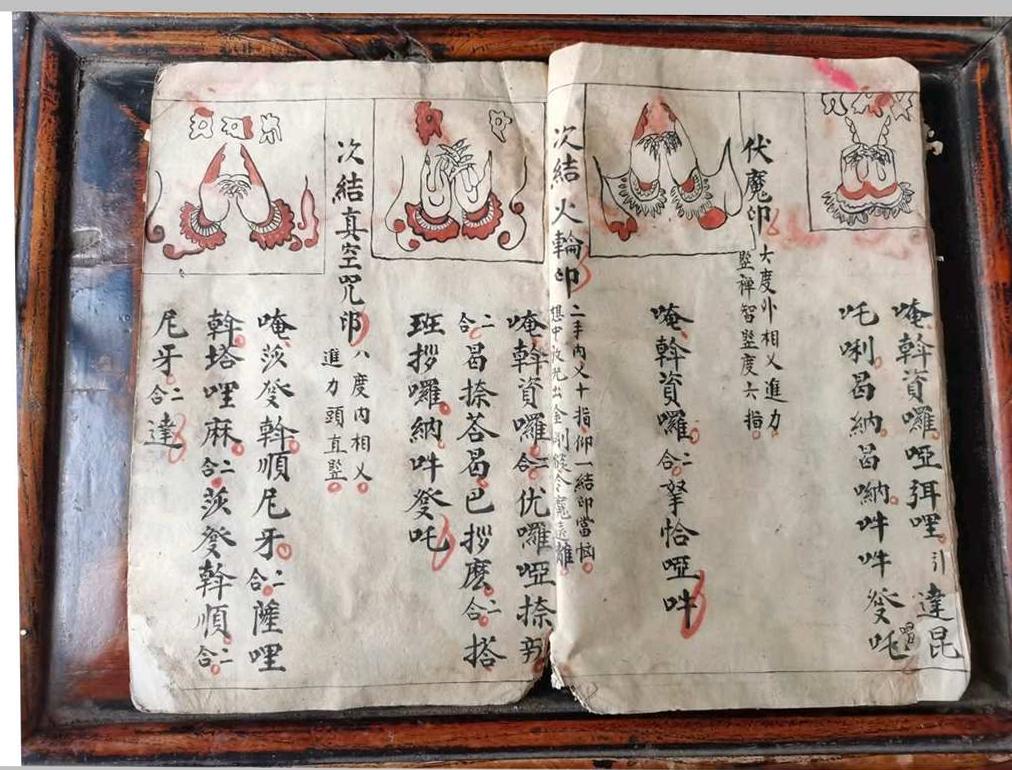 唵斡資囉啞弭哩引達昆
吒唎曷納曷㘕吽吽癹吒
伏魔印
六度外相乂進力
竪禅智竪度六指
唵斡資囉二合拏恰啞吽
次結火輪印
二手内乂十指仰一結印當恼
想中放光出金剛燄令魔遠離
唵斡資囉二合优囉啞捺
二合曷捺荅曷巴拶麽二合搭
班拶囉納吽癹吒
次結真空咒印
八度内相乂
進力頭直竪
唵莎癹斡順尼牙二合薩哩
斡塔哩麻二合莎癹斡順二合
尼牙二合達